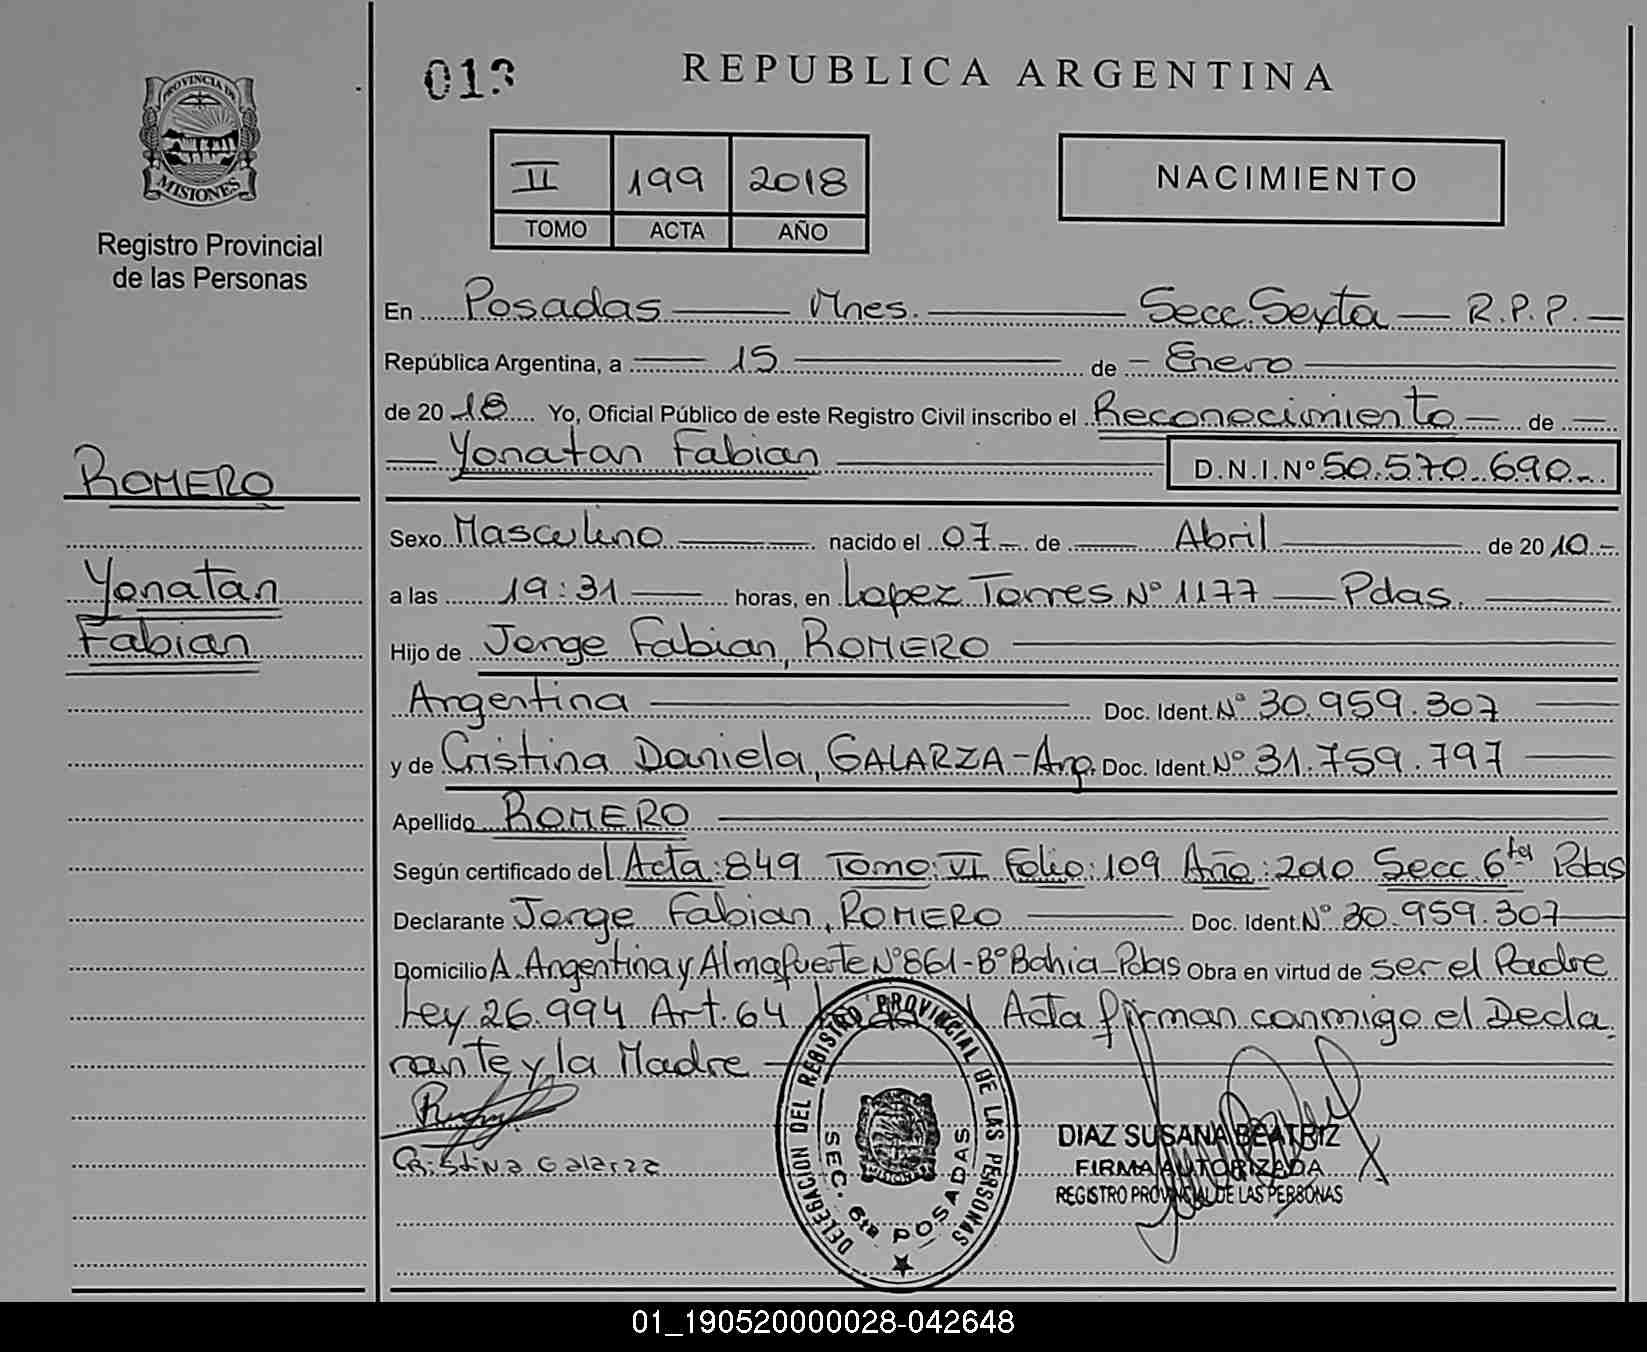 013
REPUBLICA ARGENTINA
PROVINCIA DE
MISIONES
Registro Provincial
de las Personas
II 199 2018
TOMO ACTA AÑO
NACIMIENTO
En Posadas Mnes. Secc Sexta R.P.P.
República Argentina, a 15 de Enero
de 20 18 Yo, Oficial Público de este Registro Civil inscribo el Reconocimiento de
Yonatan Fabian D.N.I.Nº 50.570.690
ROMERO
Yonatan
Fabian
Sexo Masculino nacido el 07 de Abril de 20 10
a las 19:31 horas, en Lopez Torres Nº 1177 Pdas.
Hijo de Jorge Fabian, ROMERO
Argentina Doc. Ident. Nº 30.959.307
y de Cristina Daniela, GALARZA-Arg. Doc. Ident. Nº 31.759.797
Apellido ROMERO
Según certificado del Acta: 849 Tomo: VI Folio: 109 Año: 2010 Secc 6ta Pdas
Declarante Jorge Fabian, ROMERO Doc. Ident. Nº 30.959.307
Domicilio A. Argentina y Almafuerte Nº 861-Bº Bahia-Pdas Obra en virtud de ser el Padre
Ley 26.994 Art. 64 Acta firman conmigo el Decla
rante y la Madre
Cristina Galarza
DELEGACION DEL REGISTRO PROVINCIAL DE LAS PERSONAS
SEC. 6ta POSADAS
DIAZ SUSANA BEATRIZ
FIRMA AUTORIZADA
REGISTRO PROVINCIAL DE LAS PERSONAS
01_190520000028-042648